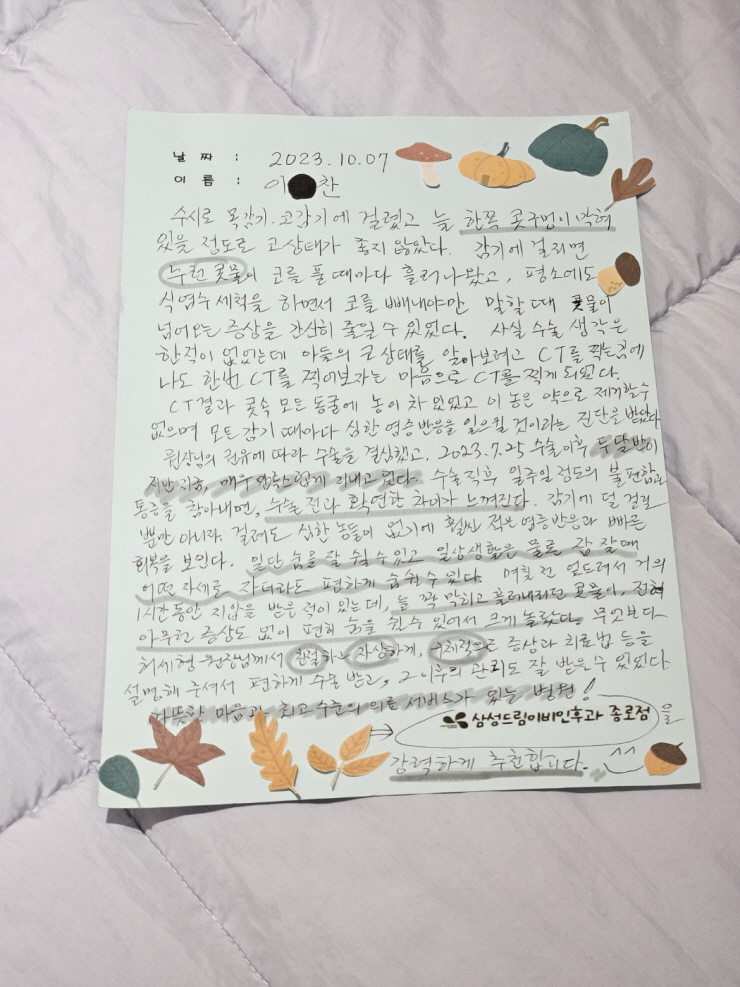 날 짜 : 2023.10.07
이 름 : 이●찬
수시로 목감기·코감기에 걸렸고 늘 한쪽 콧구멍이 막혀
있을 정도로 코상태가 좋지 않았다. 감기에 걸리면
누런 콧물이 코를 풀 때마다 흘러나왔고, 평소에도
식염수 세척을 하면서 코를 빼내야만 말할 때 콧물이
넘어오는 증상을 간신히 줄일 수 있었다. 사실 수술 생각은
한적이 없었는데 아들의 코 상태를 알아보려고 CT를 찍는김에
나도 한번 CT를 찍어보자는 마음으로 CT를 찍게 되었다.
CT결과 콧속 모든 동굴에 농이 차 있었고 이 농은 약으로 제거할 수
없으며 모든 감기 때마다 심한 염증반응을 일으킬 것이라는 진단을 받았다
원장님의 권유에 따라 수술을 결심했고, 2023.7.25 수술이후 두달반이
지난 지금, 매우 만족스럽게 지내고 있다. 수술직후 일주일 정도의 불편함과
통증을 참아내면, 수술 전과 확연한 차이가 느껴진다. 감기에 덜 걸릴
뿐만 아니라. 걸려도 심한 농들이 없기에 훨씬 적은 염증반응과 빠른
회복을 보인다. 일단 숨을 잘 쉴 수 있고 일상생활은 물론 잠 잘때
어떤 자세로 자더라도 편하게 숨쉴 수 있다. 며칠 전 엎드려서 거의
1시간 동안 지압을 받은 적이 있는데, 늘 꽉 막히고 흘러내리던 콧물이, 전혀
아무런 증상도 없이 편히 숨을 쉴 수 있어서 크게 놀랐다. 무엇보다
허세형 원장님께서 친절하고 자상하게, 구체적으로 증상과 치료법 등을
설명해 주셔서 편하게 수술 받고, 그 이후의 관리도 잘 받을 수 있었다
따뜻한 마음과 최고 수준의 의료 서비스가 있는 병원!
→ 삼성드림이비인후과 종로점 을
강력하게 추천합니다. ^^